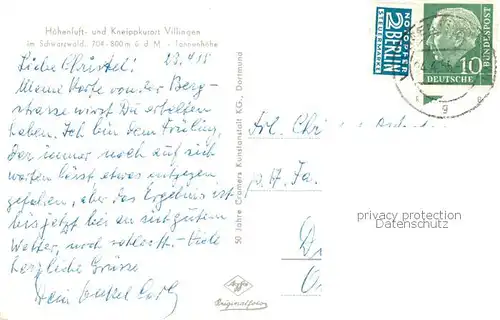 Höhenluft- und Kneippkurort Villingen
im Schwarzwald, 704-800m ü. d. M. - Tannenhöhe
23.4.58
Liebe Christel!
Meine Karte von der Berg-
strasse wirst Du erhalten
haben. Ich bin dem Frühling,
der immer noch auf sich
warten lässt etwas entgegen
gefahren, aber das Ergebnis ist
bis jetzt bei an sich gutem
Wetter, noch schlecht. - Viele
herzliche Grüsse
Dein Onkel Carl
50 Jahre Cramers Kunstanstalt KG., Dortmund
Agfa
Originalfoto
NOTOPFER
2 BERLIN
STEUERMARKE
DEUTSCHE BUNDESPOST
10
Frl.
p. A. Fa.
privacy protection
DATENSCHUTZ